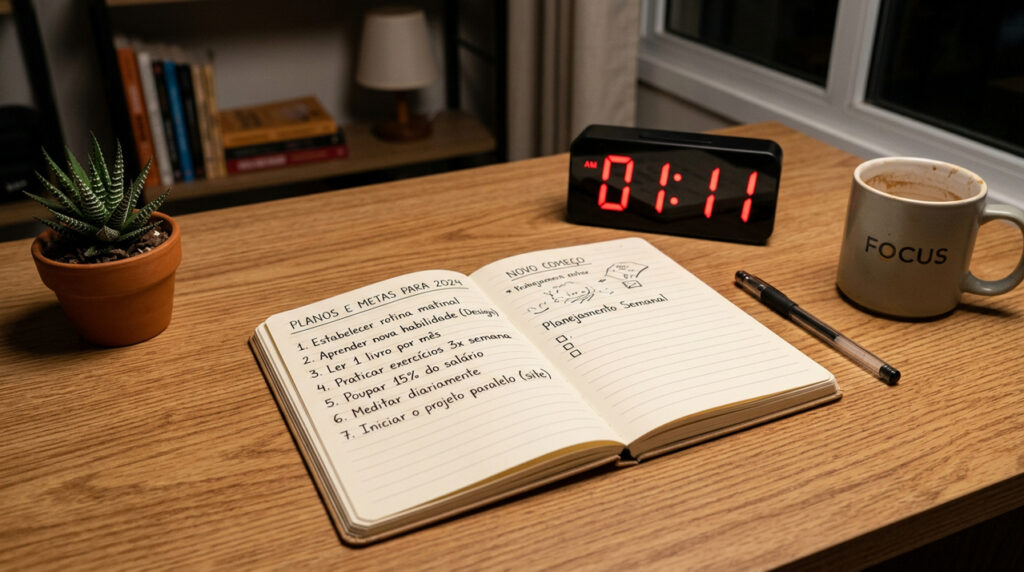 PLANOS E METAS PARA 2024
1. Estabelecer rotina matinal
2. Aprender nova habilidade (Design)
3. Ler 1 livro por mês
4. Praticar exercícios 3x semana
5. Poupar 15% do salário
6. Meditar diariamente
7. Iniciar o projeto paralelo (site)
NOVO COMEÇO
Planejamento Semanal
AM
01:11
FOCUS